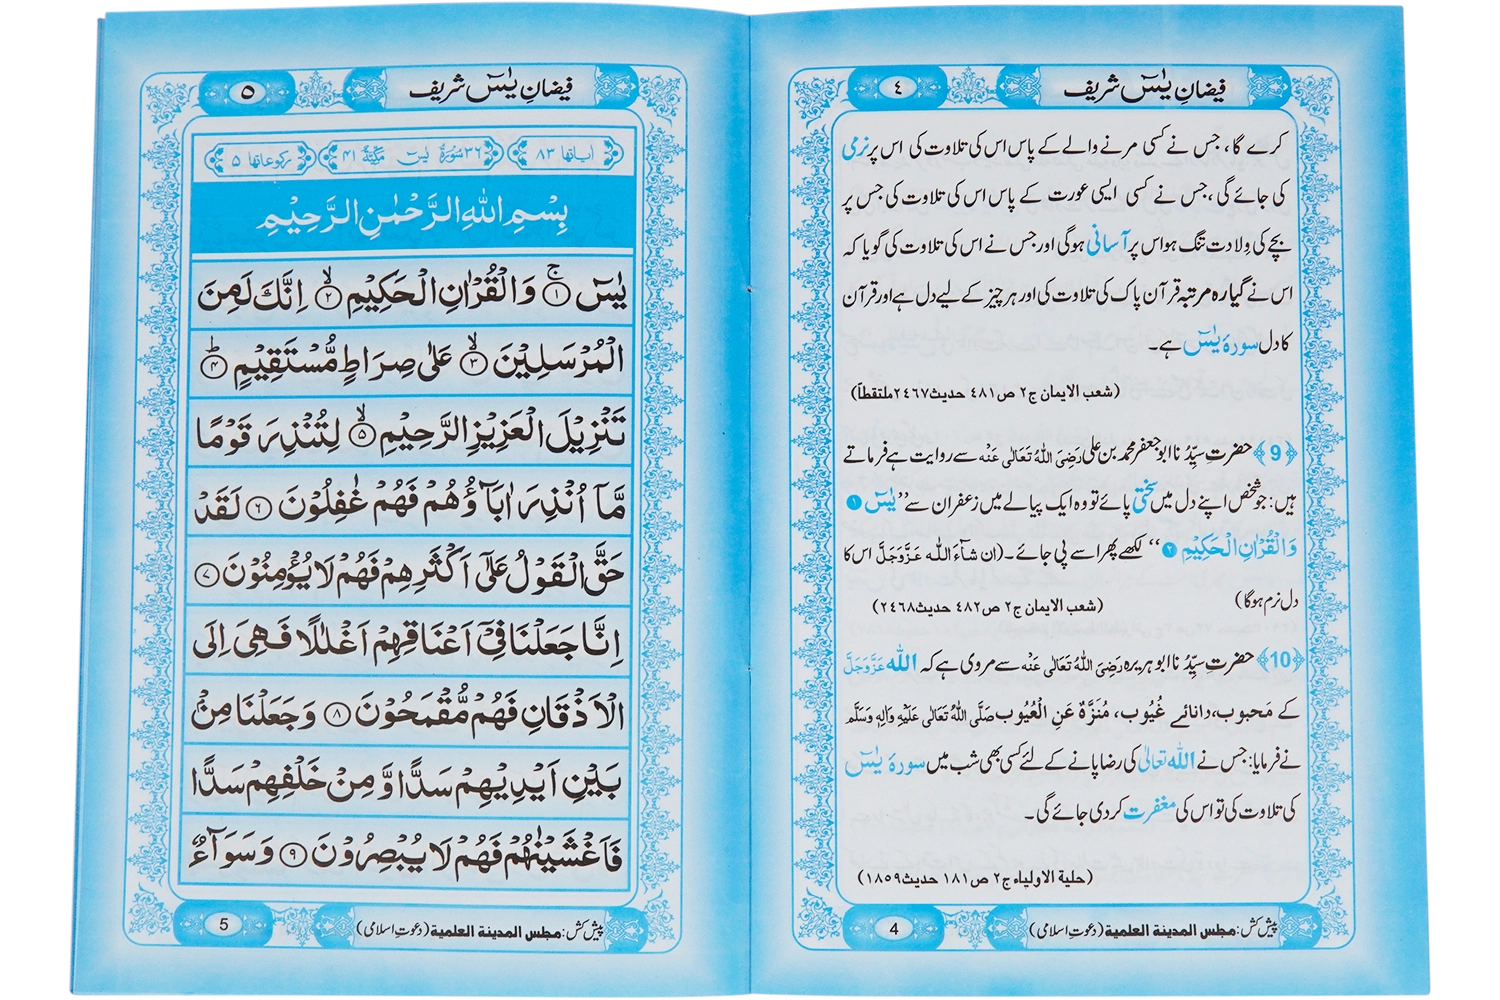 فیضانِ یٰسٓ شریف
٤
کرے گا، جس نے کسی مرنے والے کے پاس اس کی تلاوت کی اس پر نرمی
کی جائے گی، جس نے کسی ایسی عورت کے پاس اس کی تلاوت کی جس پر
بچے کی ولادت تنگ ہو اس پر آسانی ہوگی اور جس نے اس کی تلاوت کی گویا کہ
اس نے گیارہ مرتبہ قرآن پاک کی تلاوت کی اور ہر چیز کے لیے دل ہے اور قرآن
کا دل سورۂ یٰسٓ ہے۔
(شعب الایمان ج٢ ص٤٨١ حدیث٢٤٦٧ملتقطاً)
﴿9﴾ حضرتِ سیِّدُنا ابو جعفر محمد بن علی رَضِیَ اللہُ تَعَالٰی عَنْہ سے روایت ہے فرماتے
ہیں: جو شخص اپنے دل میں سختی پائے تو وہ ایک پیالے میں زعفران سے ’’یٰسٓ ۝١
وَالْقُرْاٰنِ الْحَكِیْمِ ۝٢‘‘ لکھے پھر اسے پی جائے۔ (ان شآءَ اللہ عَزَّوَجَلَّ اس کا
دل نرم ہوگا) (شعب الایمان ج٢ ص٤٨٢ حدیث٢٤٦٨)
﴿10﴾ حضرتِ سیِّدُنا ابوہریرہ رَضِیَ اللہُ تَعَالٰی عَنْہ سے مروی ہے کہ اللہ عَزَّوَجَلَّ
کے مَحبوب، دانائے غُیُوب، مُنَزَّہٌ عَنِ الْعُیُوب صَلَّی اللہُ تَعَالٰی عَلَیْہِ وَاٰلِہٖ وَسَلَّم
نے فرمایا: جس نے اللہ تعالٰی کی رضا پانے کے لئے کسی بھی شب میں سورۂ یٰسٓ
کی تلاوت کی تو اس کی مغفرت کر دی جائے گی۔
(حلیة الاولیاء ج٢ ص١٨١ حدیث١٨٥٩)
پیش کش: مجلس المدينة العلمية (دعوتِ اسلامی)
4
فیضانِ یٰسٓ شریف
٥
اٰیاتها ٨٣ ٣٦ سُوْرَةُ یٰسٓ مَكِّيَّةٌ ٤١ رکوعاتها ٥
بِسْمِ اللّٰهِ الرَّحْمٰنِ الرَّحِیْمِ
یٰسٓ ۝١ وَالْقُرْاٰنِ الْحَكِیْمِ ۝٢ اِنَّكَ لَمِنَ
الْمُرْسَلِیْنَ ۝٣ عَلٰی صِرَاطٍ مُّسْتَقِیْمٍ ۝٤
تَنْزِیْلَ الْعَزِیْزِ الرَّحِیْمِ ۝٥ لِتُنْذِرَ قَوْمًا
مَّاۤ اُنْذِرَ اٰبَآؤُهُمْ فَهُمْ غٰفِلُوْنَ ۝٦ لَقَدْ
حَقَّ الْقَوْلُ عَلٰۤی اَكْثَرِهِمْ فَهُمْ لَا یُؤْمِنُوْنَ ۝٧
اِنَّا جَعَلْنَا فِیْۤ اَعْنَاقِهِمْ اَغْلٰلًا فَهِیَ اِلَی
الْاَذْقَانِ فَهُمْ مُّقْمَحُوْنَ ۝٨ وَجَعَلْنَا مِنْۢ
بَیْنِ اَیْدِیْهِمْ سَدًّا وَّ مِنْ خَلْفِهِمْ سَدًّا
فَاَغْشَیْنٰهُمْ فَهُمْ لَا یُبْصِرُوْنَ ۝٩ وَسَوَآءٌ
پیش کش: مجلس المدينة العلمية (دعوتِ اسلامی)
5